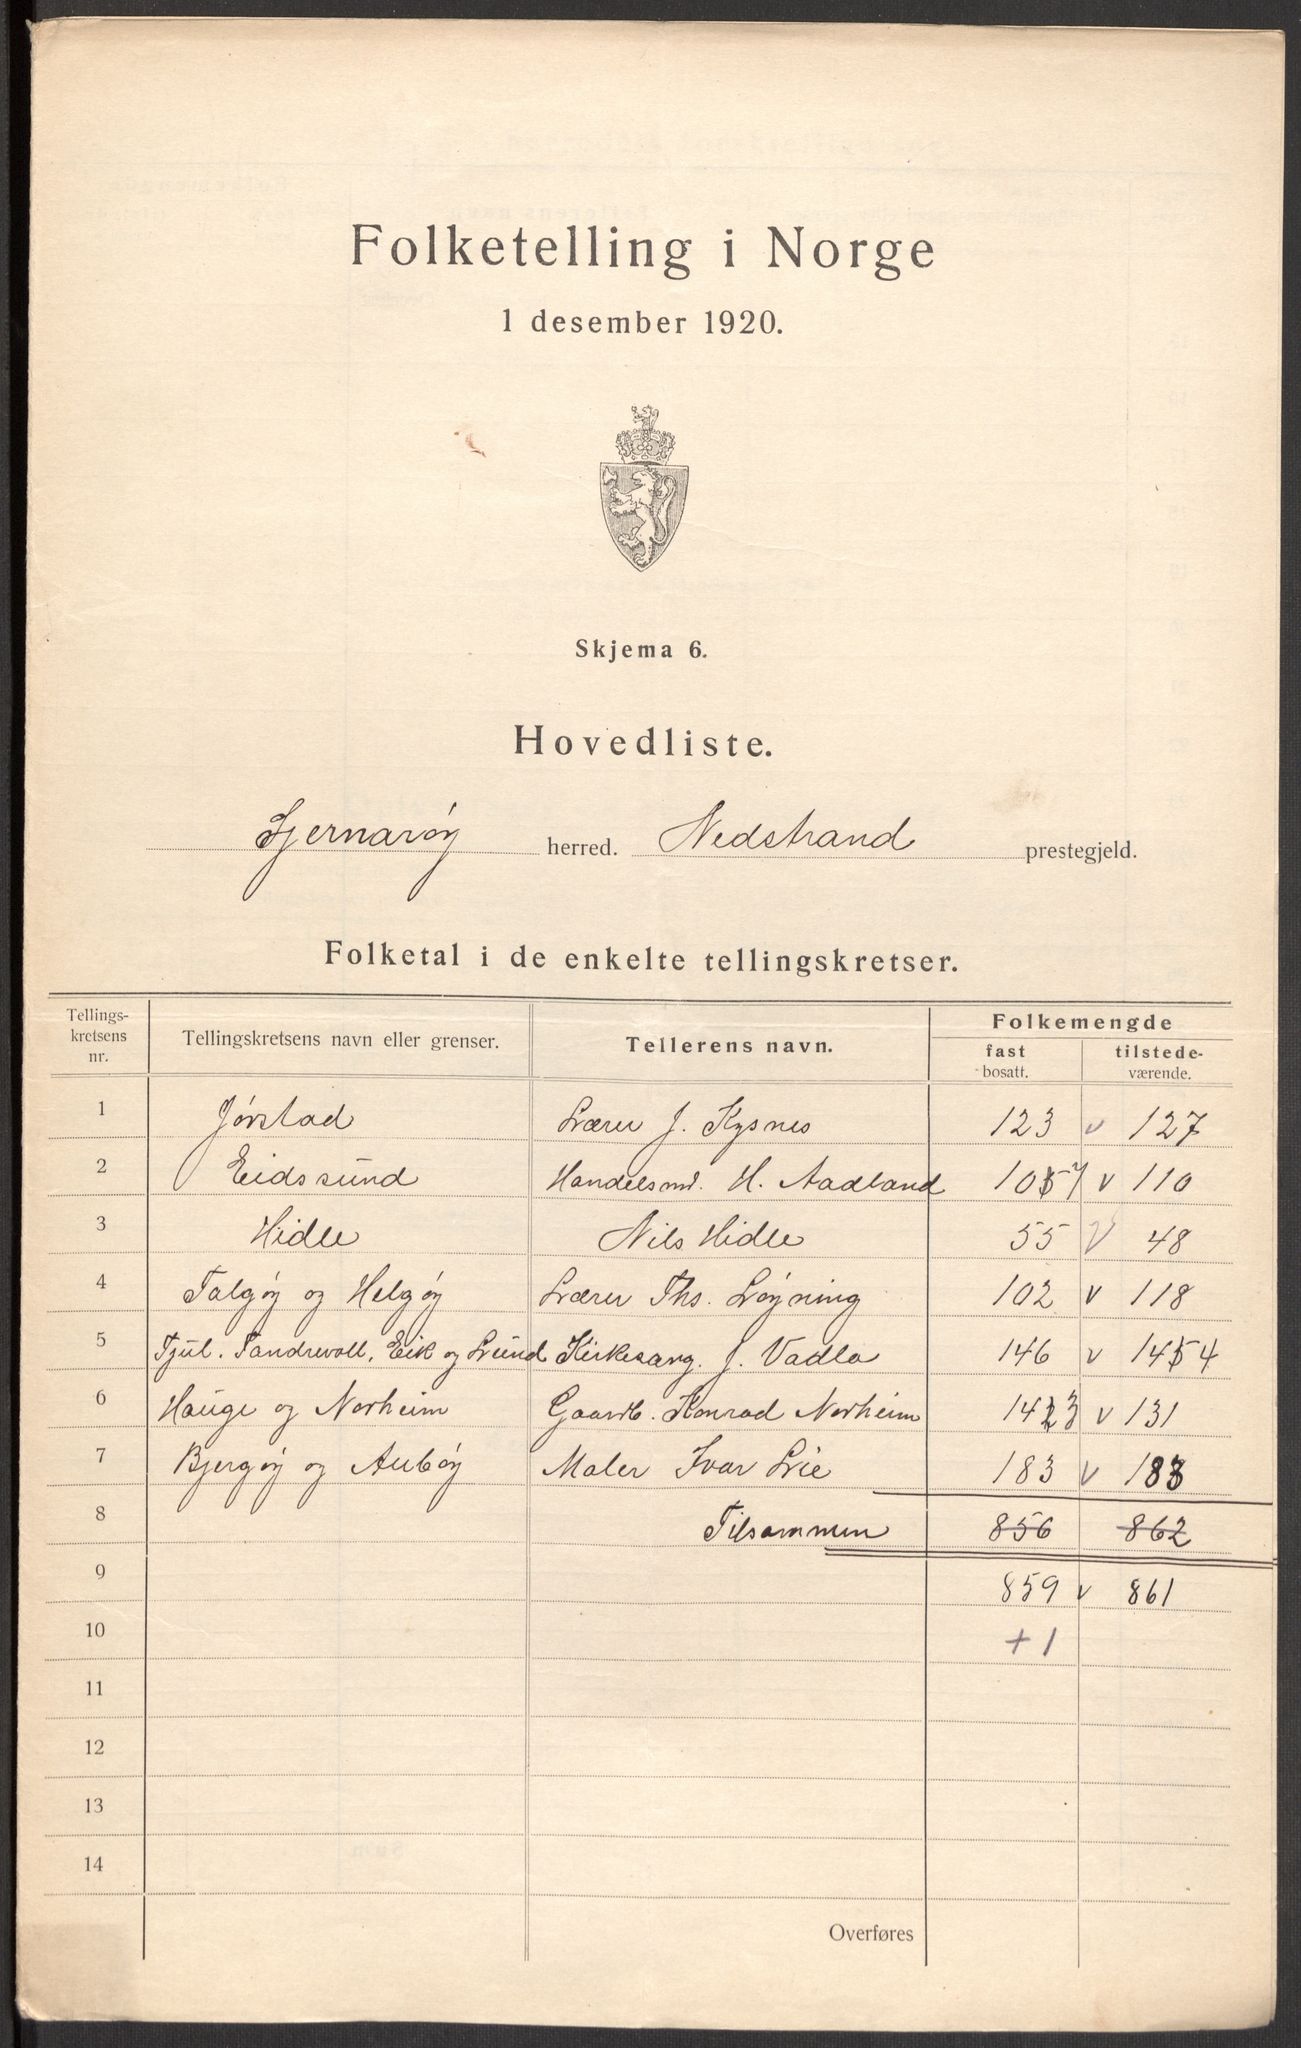 Folketelling i Norge
1 desember 1920.
Skjema 6.
Hovedliste.
Sjernarøy herred. Nedstrand prestegjeld.
Folketal i de enkelte tellingskretser.
Tellings-
kretsens
nr.
Tellingskretsens navn eller grenser.
Tellerens navn.
Folkemengde
fast
bosatt.
tilstede-
værende.
1 Jørstad Lærer J. Kysnes 123 v 127
2 Eidssund Handelsmd. H. Aadland 107 v 110
3 Hidle Nils Hidle 55 v 48
4 Talgøy og Helgøy Lærer Ths. Løyning 102 v 118
5 Tjul. Tandrevoll, Eik og Lund Kirkesang. J. Vadla 146 v 144
6 Hauge og Norheim Gaardb. Konrad Norheim 143 v 131
7 Bjergøy og Aubøy Maler Ivar Lie 183 v 183
8 Tilsammen 856 862
9 859 v 861
10 +1
11
12
13
14
Overføres